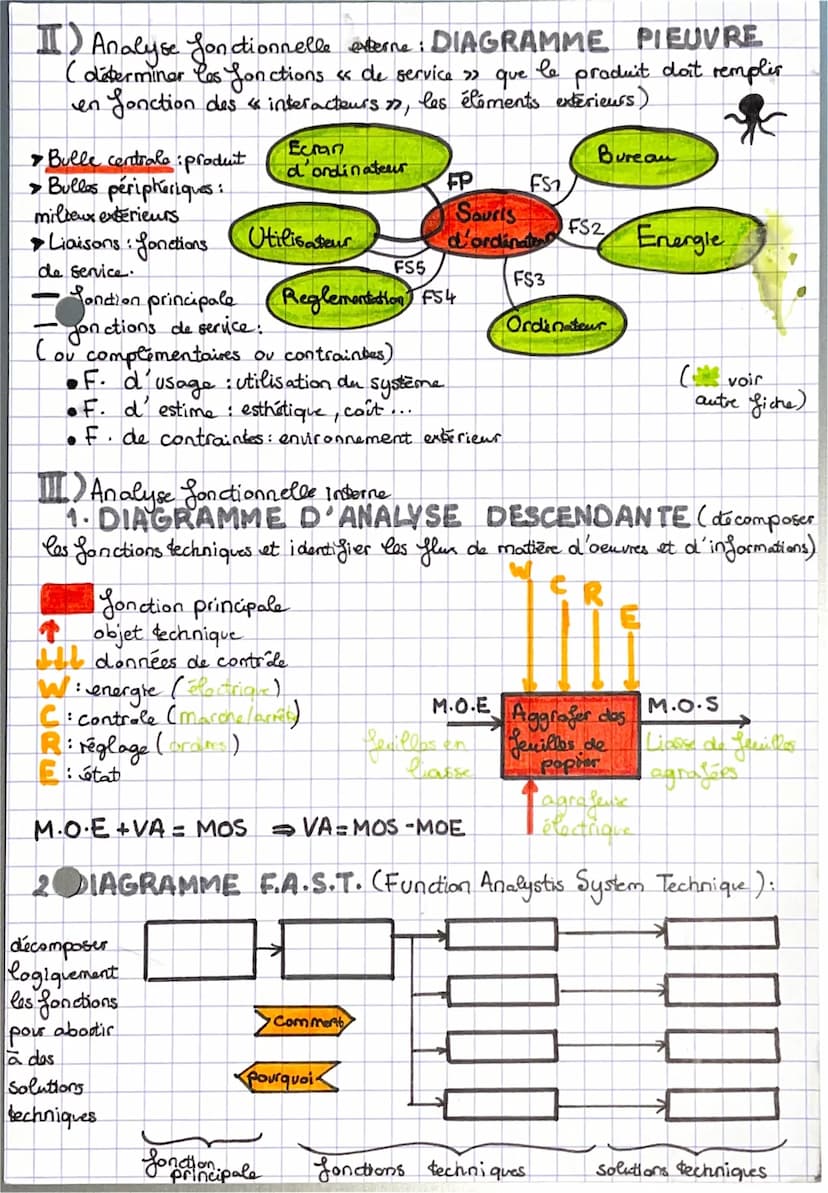 II) Analyse fonctionnelle externe : DIAGRAMME PIEUVRE
( déterminer les fonctions « de service » que le produit doit remplir
en fonction des « interacteurs », les éléments extérieurs)
➤ Bulle centrale : produit
➤ Bulles périphériques :
milieux extérieurs
➤ Liaisons : fonctions
de service.
— fonction principale
— fonctions de service :
( ou complémentaires ou contraintes)
• F. d'usage : utilisation du système
• F. d'estime : esthétique, coût ...
• F. de contraintes : environnement extérieur
Ecran
d'ordinateur
Bureau
FP
FS1
Souris
d'ordinateur
Utilisateur
FS2
Energie
FS5
FS3
Reglementation
FS4
Ordinateur
( voir
autre fiche)
III) Analyse fonctionnelle Interne
1. DIAGRAMME D'ANALYSE DESCENDANTE ( décomposer
les fonctions techniques et identifier les flux de matière d'oeuvres et d'informations)
fonction principale
objet technique
données de contrôle
W : energie ( électrique )
C : controle ( marche/arrêt )
R : réglage ( ordres )
E : état
W C R E
M.O.E
Aggrafer des
feuilles de
papier
M.O.S
feuilles en
liasse
Liasse de feuilles
agrafées
agrafeuse
électrique
M.O.E + VA = MOS ⇒ VA = MOS - MOE
2 DIAGRAMME F.A.S.T. (Function Analystis System Technique ) :
décomposer
logiquement
les fonctions
pour aboutir
à des
solutions
techniques
Comment
pourquoi
fonction
principale
fonctions techniques
solutions techniques